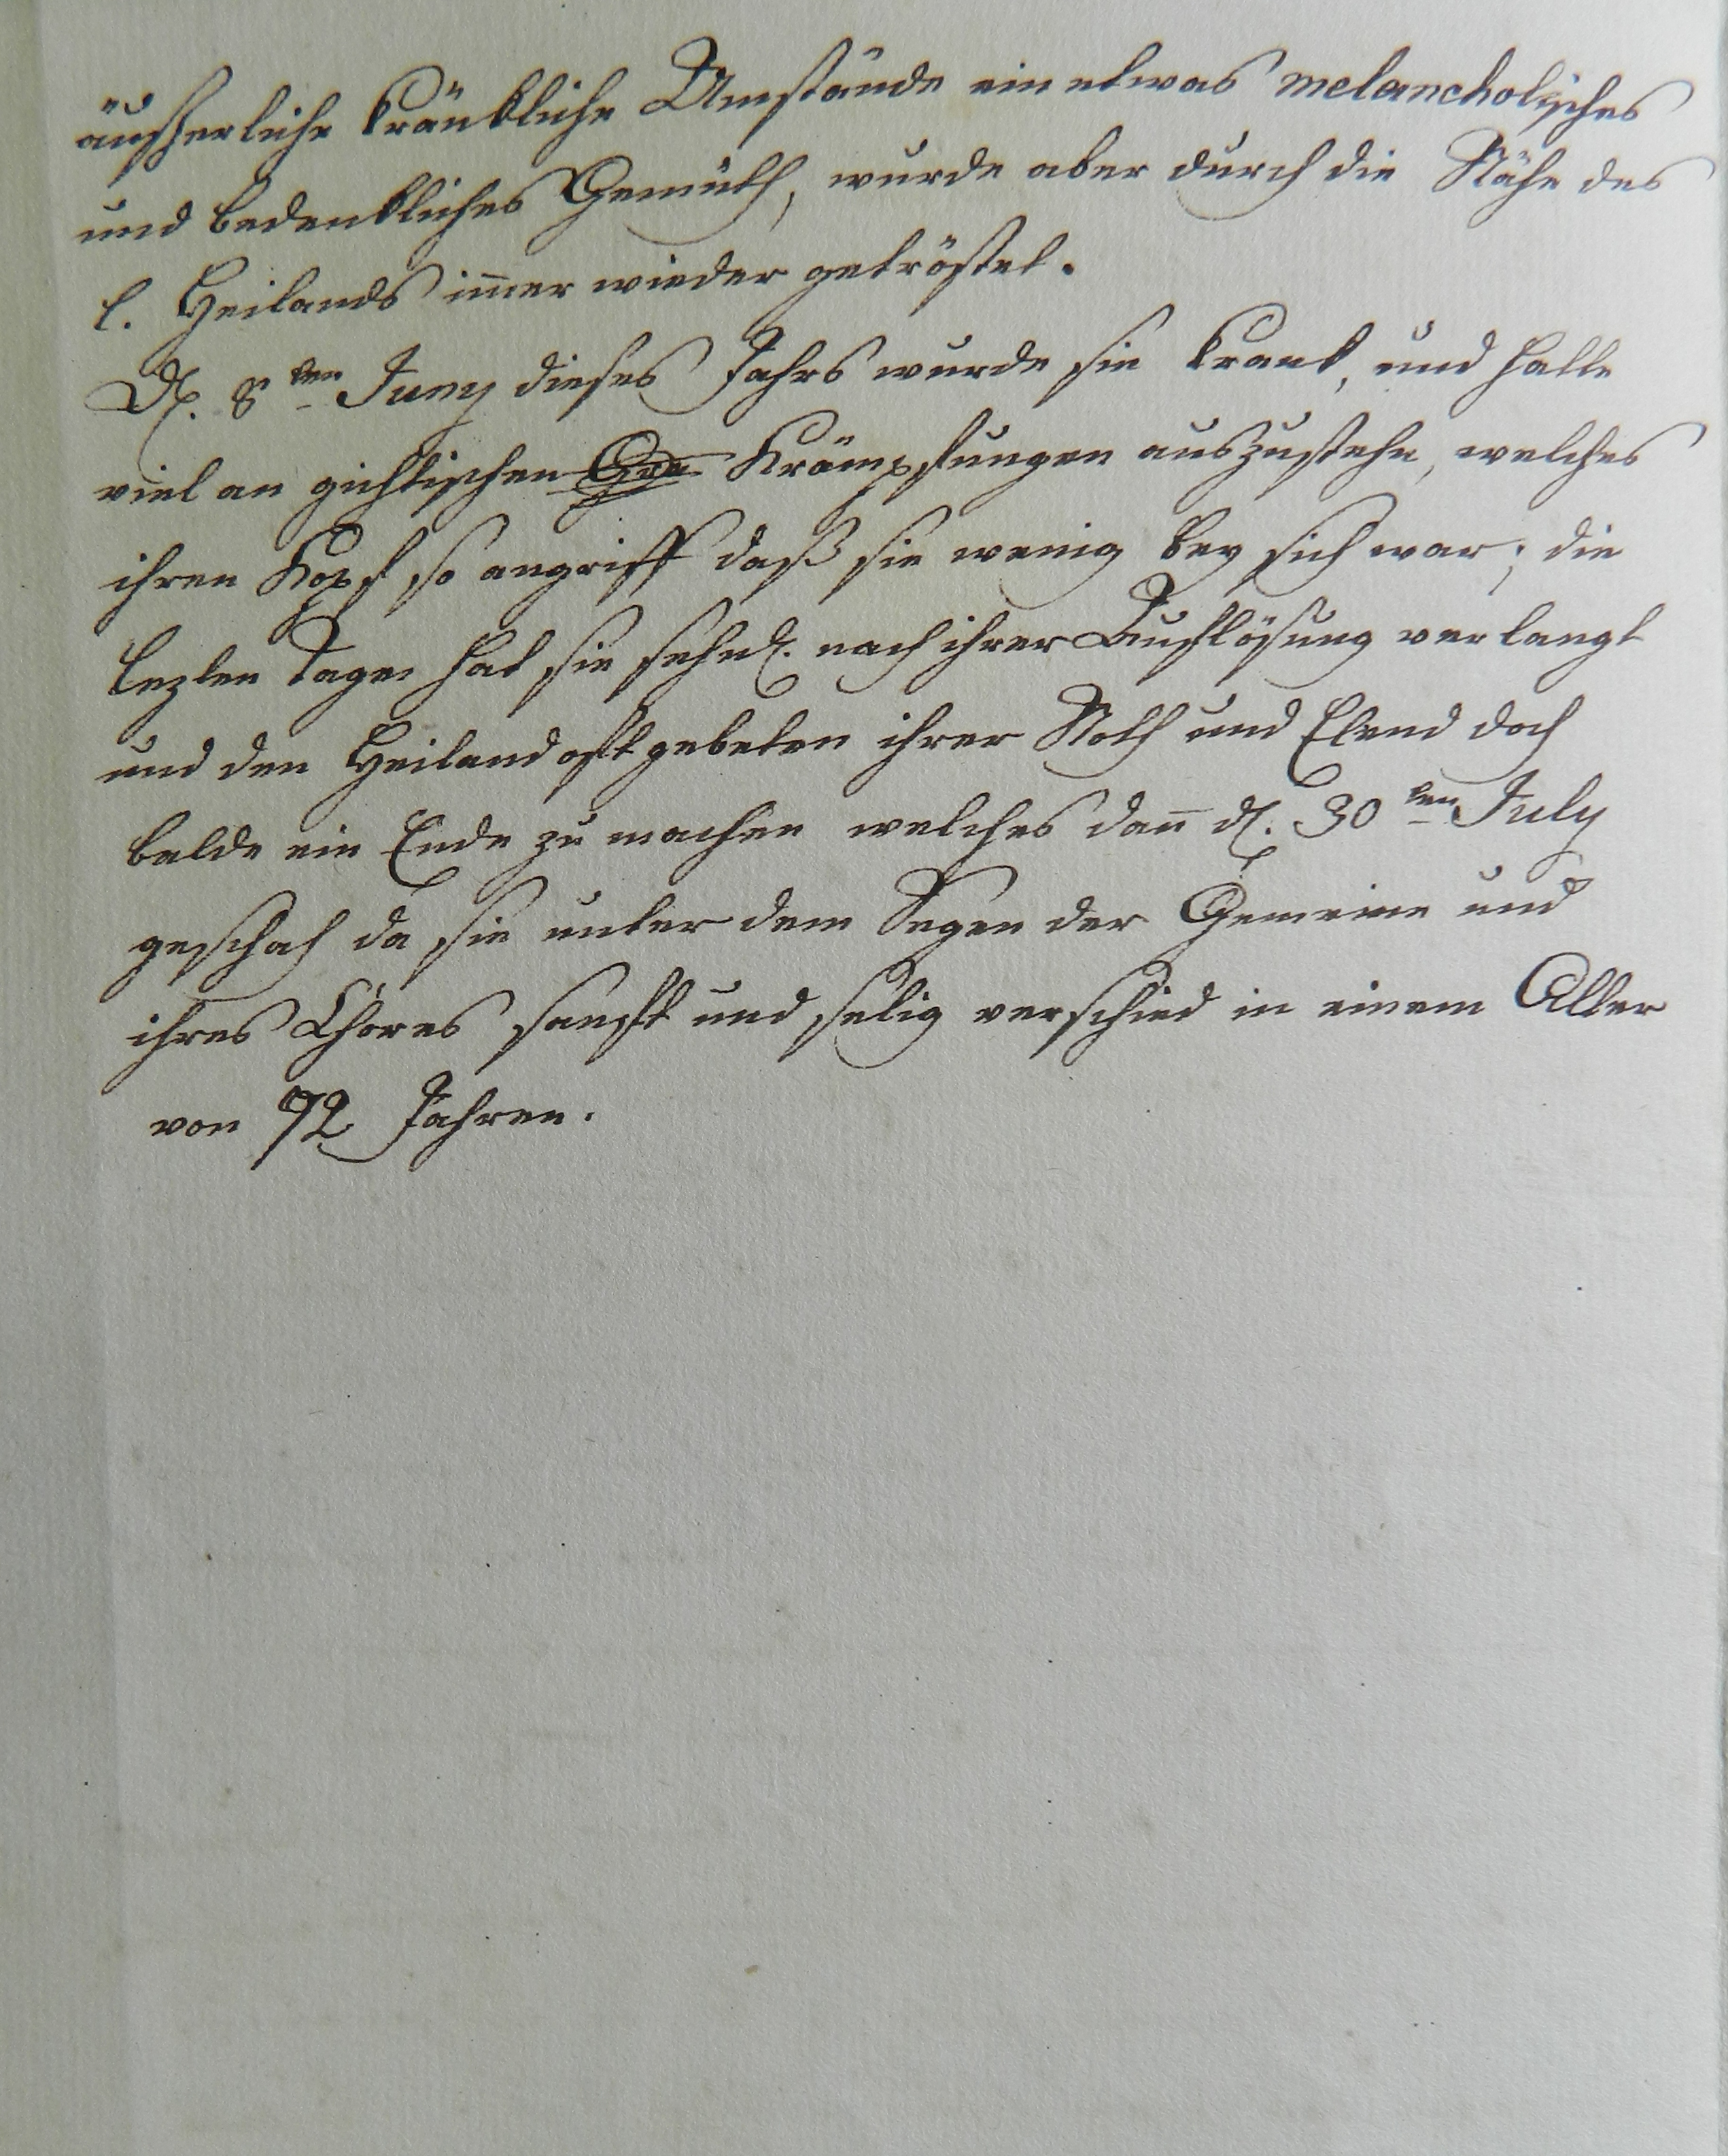 äußerliche kränkliche Umstände ein etwas melancholisches
und bedenkliches Gemüth, wurde aber durch die Nähe des
l. Heilands im̄er wieder getröstet.
D. 8ten Juny dieses Jahrs wurde sie krank, und hatte
viel an gichtischen Krämpfungen auszustehn, welches
ihren Kopf so angriff daß sie wenig bey sich war; die
lezten Tage hat sie sehnl. nach ihrer Auflösung verlangt
und den Heiland oft gebeten ihrer Noth und Elend doch
balde ein Ende zu machen welches dan̄ d. 30ten July
geschah da sie unter dem Segen der Gemeine und
ihres Chores sanft und selig verschied in einem Alter
von 72 Jahren.